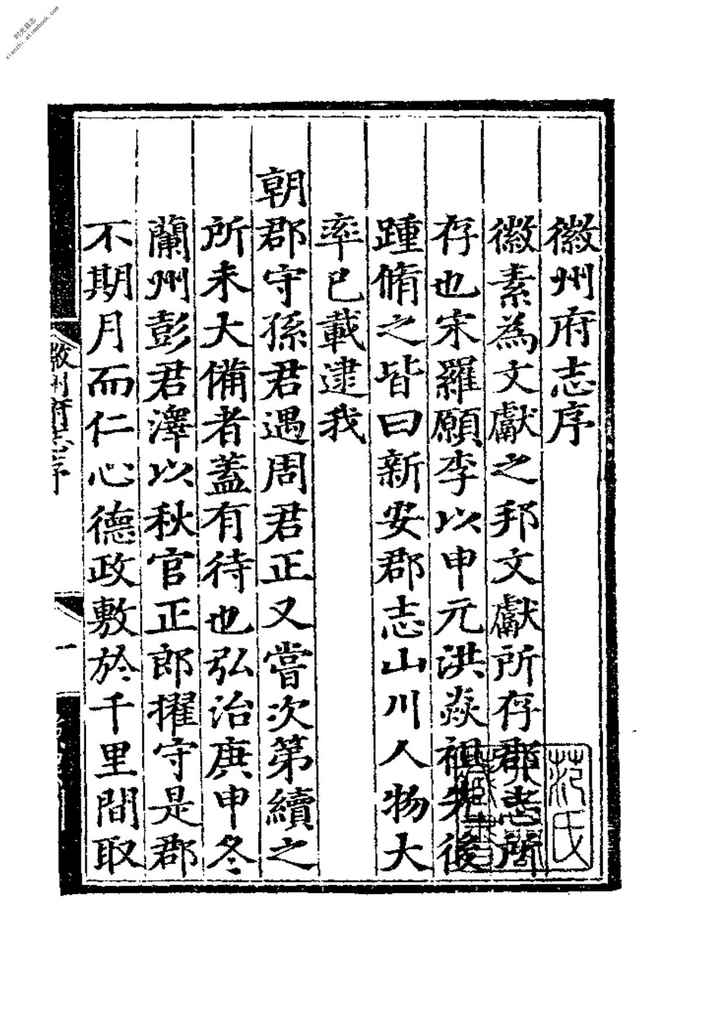 徽州府志序
徽素為文獻之邦文獻所存郡志所
存也宋羅願李以申元洪焱祖先後
踵脩之皆曰新安郡志山川人物大
率已載逮我
朝郡守孫君遇周君正又嘗次第續之
所未大備者蓋有待也弘治庚申冬
蘭州彭君澤以秋官正郎擢守是郡
不期月而仁心德政敷於千里間取
徽州府志序
一
范氏
时光县志
xianzhi.atimebook.com